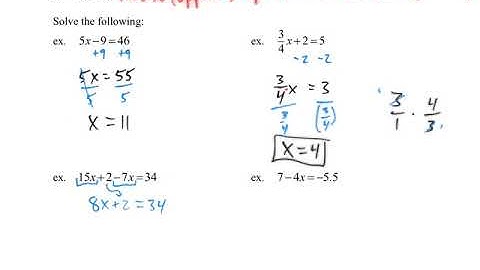 Solve the following:
ex. 5x−9=46
+9 +9
5x = 55
5 5
x = 11
ex. 3/4 x+2=5
−2 −2
3/4 x = 3
3/4 (3/4)
x = 4
3/1 · 4/3
ex. 15x+2−7x=34
8x+2=34
ex. 7−4x=−5.5